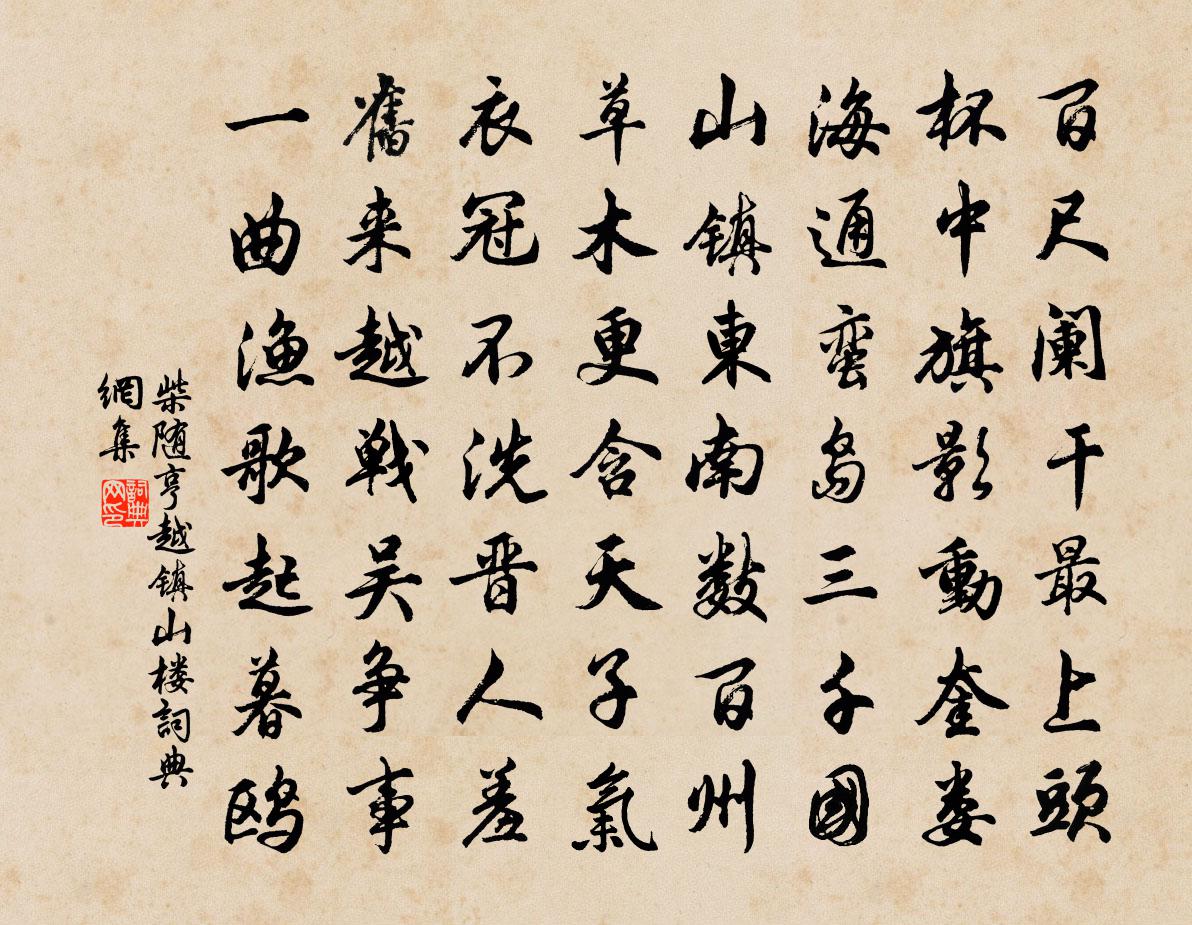 百尺阑干最上頭
杯中旗影動奎娄
海通蛮島三千國
山镇東南数百州
草木更含天子氣
衣冠不洗晋人羞
舊来越戦吴争事
一曲漁歌起暮鸥
柴随亨越镇山楼詞典
網集
詞典
网印